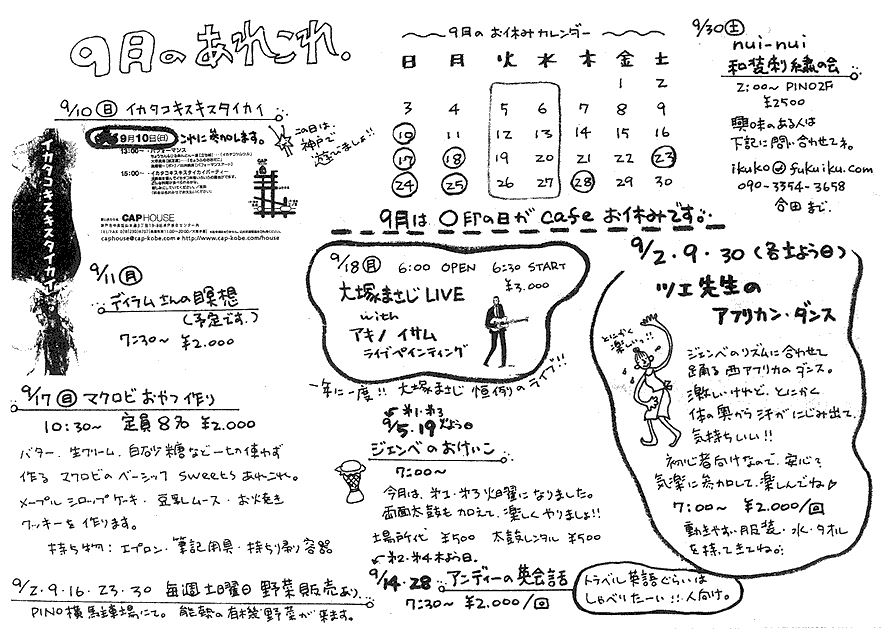 9月のあれこれ.
9/10(日) イカタコキスキスタイカイ
9月10日(日) これに参加します。
この日は、神戸で遊いましょ!!
イカタコキスキスタイカイ
13:00~ パフォーマンス
15:00~ イカタコキスキスタイカイパーティー
CAP HOUSE
caphouse@cap-kobe.com http://www.cap-kobe.com/house
9/11(月)
ディラムさんの瞑想
(予定です.)
7:30~ ¥2.000
9/17(日) マクロビおやつ作り
10:30~ 定員8名 ¥2.000
バター. 生クリーム. 白砂糖など一切使わず
作る マクロビのベーシック sweets あれこれ。
メープルシロップケーキ・豆乳ムース・お焼き
クッキーを作ります。
持ち物:エプロン・筆記用具・持ち帰り容器
9/2.9.16.23.30 毎週土曜日 野菜販売あり.
PINO横駐車場にて。能勢の有機野菜が来ます。
9月のお休みカレンダー
日 月 火 水 木 金 土
1 2
3 4 5 6 7 8 9
10 11 12 13 14 15 16
17 18 19 20 21 22 23
24 25 26 27 28 29 30
9月は○印の日がcafeお休みです.
9/18(月) 6:00 OPEN 6:30 START
¥3.000
大塚まさじ LIVE
with
アキノ イサム
ライブペインティング
一年に一度!! 大塚まさじ 恒例のライブ!!
第1・第3
9/5.19 火よう日
ジェンベのおけいこ
7:00~
今月は、第1・第3火曜になりました。
両面太鼓も加えて、楽しくやりましょ!!
場所代 ¥500 太鼓レンタル ¥500
第2・第4木よう日.
9/14・28 アンディーの英会話
7:30~ ¥2.000/回
トラベル英語ぐらいは
しゃべりたーい!!人向け。
9/30(土)
nui-nui
和装刺繍の会
2:00~ PINO2F
¥2500
興味のある人は
下記に問い合わせてネ。
ikuko@fukuiku.com
090-3354-3658
合田まで.
9/2・9・30 (各土よう日)
ツェ先生の
アフリカン・ダンス
とにかく楽しいっ!!
ジェンベのリズムに合わせて
踊る西アフリカのダンス。
激しいけれど、とにかく
体の奥から汗がにじみ出て、
気持ちいい!!
初心者向けなので、安心で
気楽に参加して、楽しんでね♪
7:00~ ¥2.000/回
動きやすい服装・水・タオル
を持ってきてね.